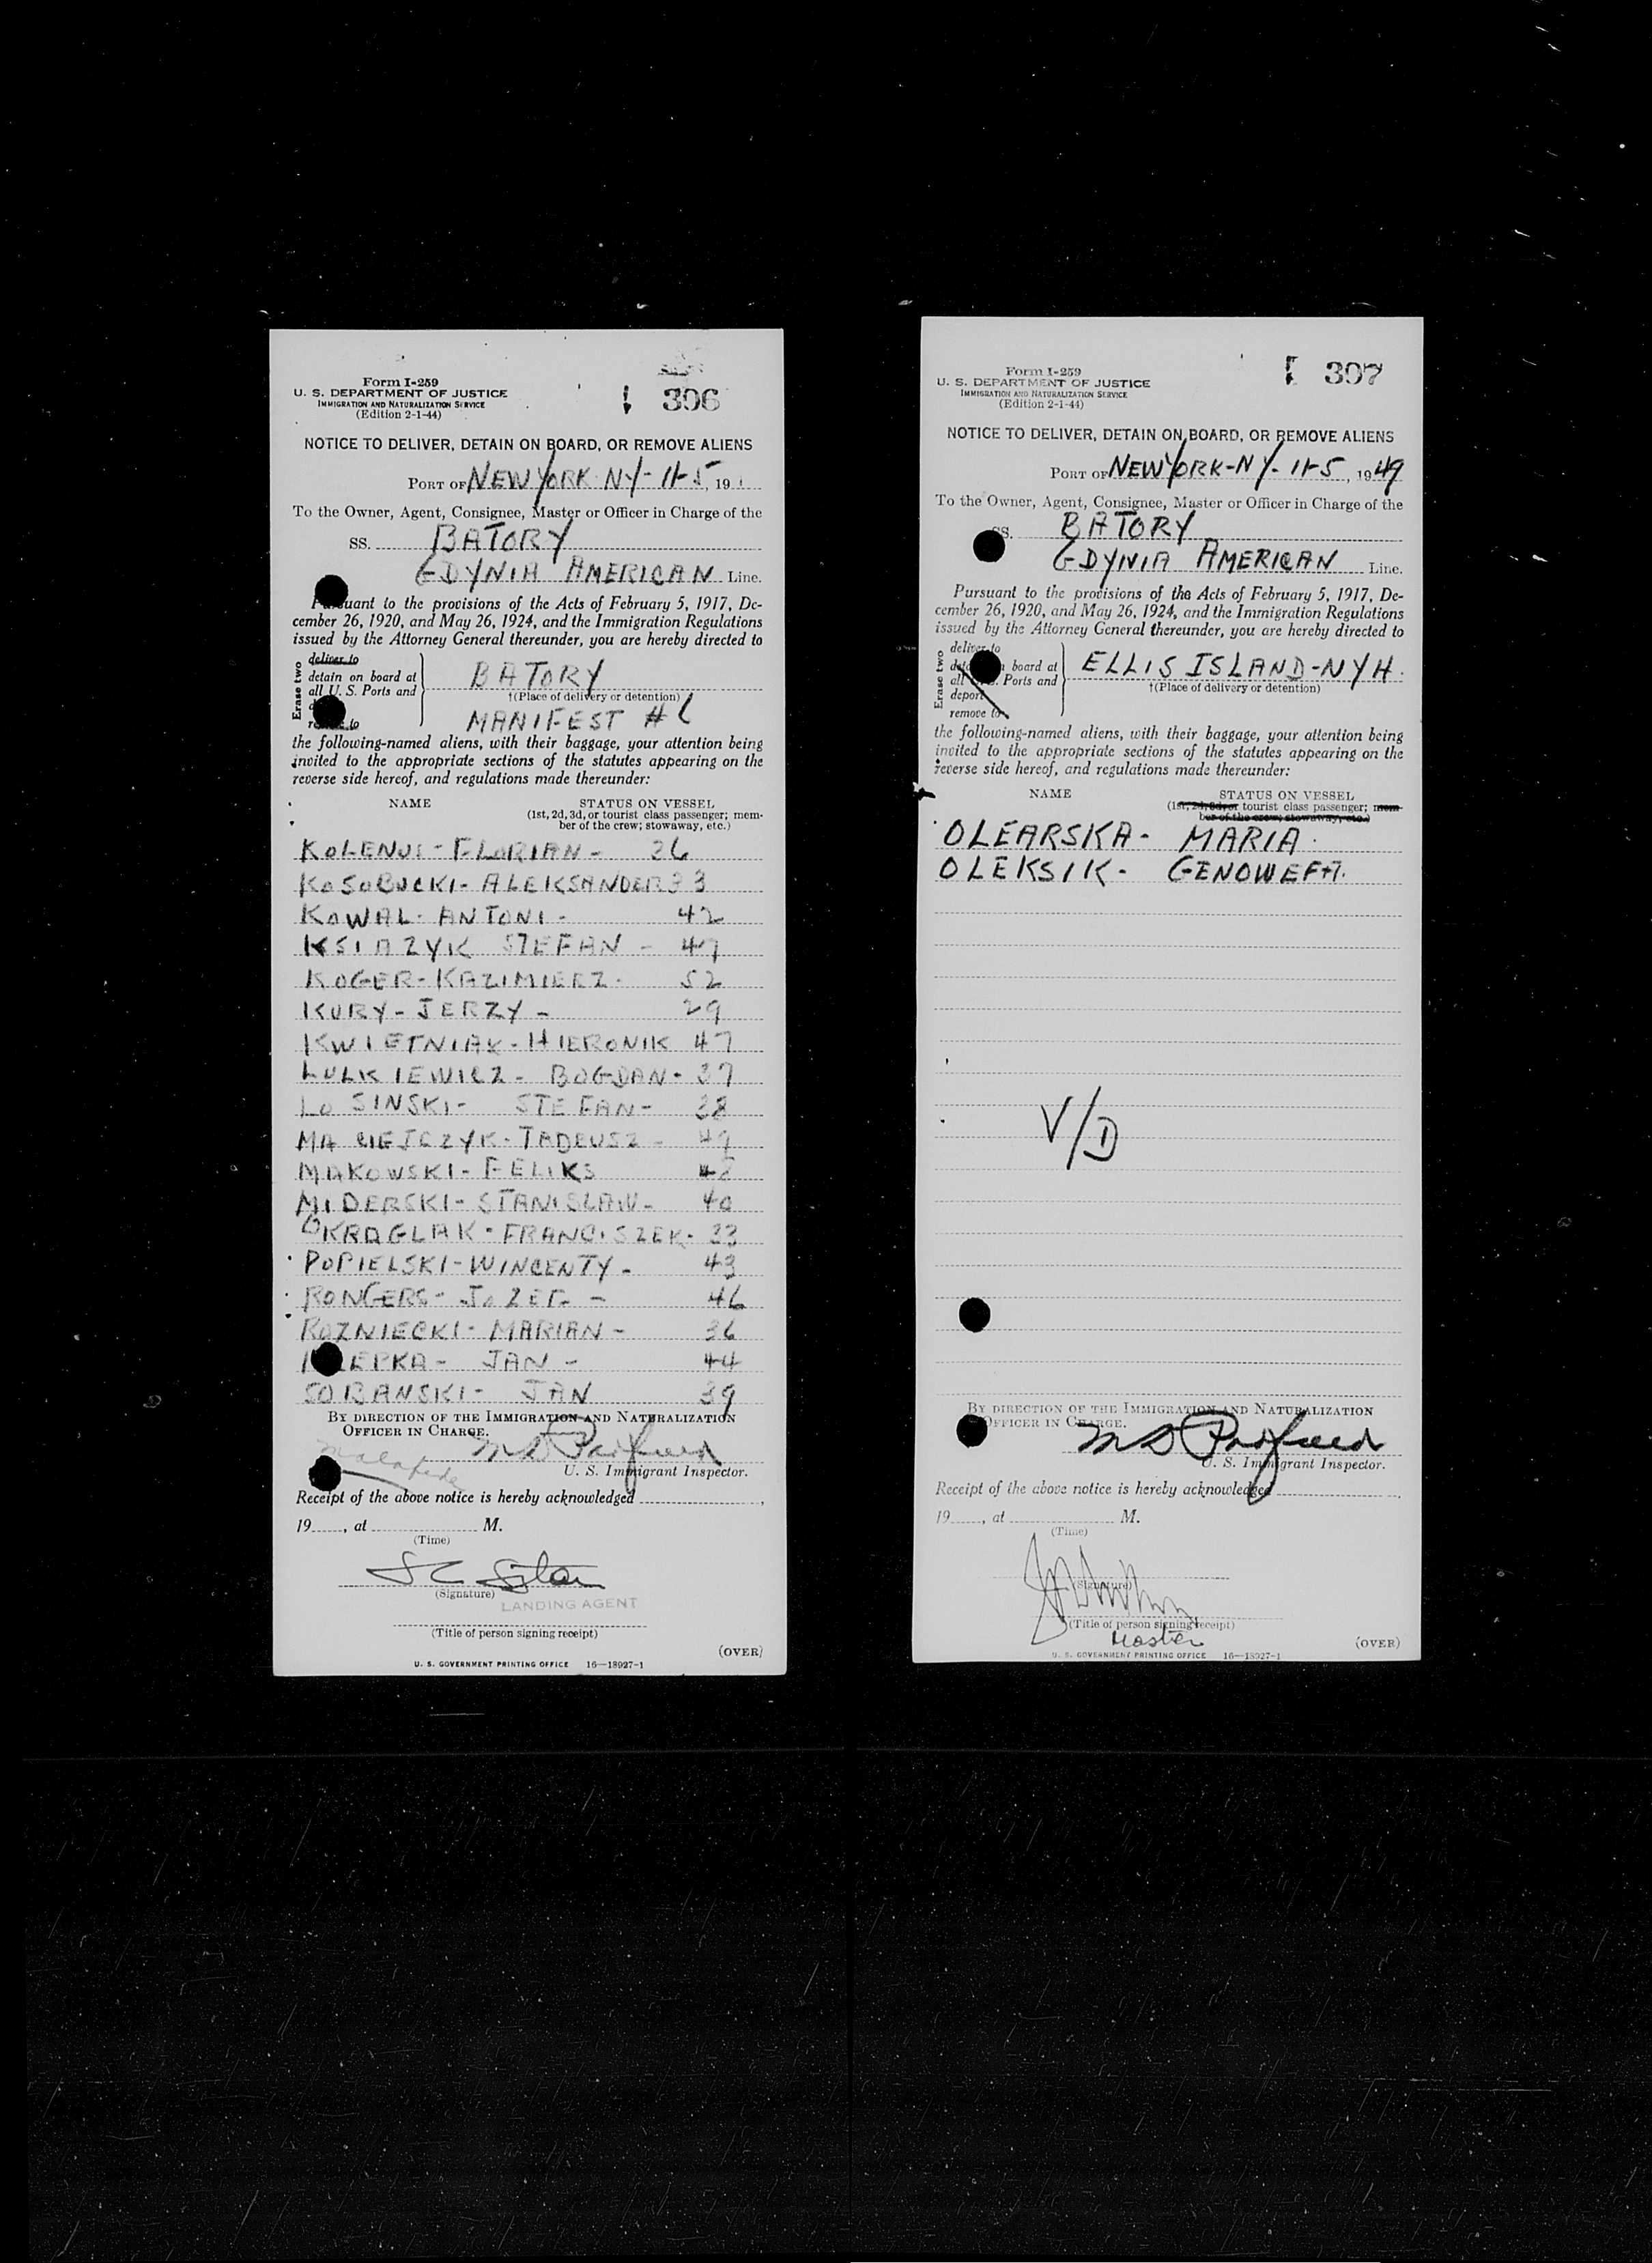 Form I-259
U. S. DEPARTMENT OF JUSTICE
IMMIGRATION AND NATURALIZATION SERVICE
(Edition 2-1-44)
306
NOTICE TO DELIVER, DETAIN ON BOARD, OR REMOVE ALIENS
PORT OF NEW YORK. NY- 11-5, 19
To the Owner, Agent, Consignee, Master or Officer in Charge of the
SS. BATORY
GDYNIA AMERICAN Line.
Pursuant to the provisions of the Acts of February 5, 1917, De-
cember 26, 1920, and May 26, 1924, and the Immigration Regulations
issued by the Attorney General thereunder, you are hereby directed to
Erase two
deliver to
detain on board at
all U. S. Ports and
to
BATORY
†(Place of delivery or detention)
MANIFEST #
the following-named aliens, with their baggage, your attention being
invited to the appropriate sections of the statutes appearing on the
reverse side hereof, and regulations made thereunder:
NAME STATUS ON VESSEL
(1st, 2d, 3d, or tourist class passenger; mem-
ber of the crew; stowaway, etc.)
KOLENUS - FLORIAN - 26
KOSOBUCKI - ALEKSANDER 33
KOWAL - ANTONI - 42
KSIAZYK STEFAN - 47
KOGER - KAZIMIERZ. 52
KURY - JERZY - 29
KWIETNIAK - HIERONIK 47
LULKIEWICZ - BOGDAN - 37
LOSINSKI - STEFAN - 38
MACIEJCZYK - TADEUSZ - 49
MAKOWSKI - FELIKS 48
MIDERSKI - STANISLAW - 40
OKRAGLAK - FRANCISZEK - 33
POPIELSKI - WINCENTY - 43
RONGERS - JOZEF - 46
ROZNIECKI - MARIAN - 36
EPKA - JAN - 44
SOBANSKI - JAN 39
BY DIRECTION OF THE IMMIGRATION AND NATURALIZATION
OFFICER IN CHARGE.
U. S. Immigrant Inspector.
Receipt of the above notice is hereby acknowledged
19, at M.
(Time)
(Signature)
LANDING AGENT
(Title of person signing receipt)
(OVER)
U. S. GOVERNMENT PRINTING OFFICE 16—18927-1
Form I-259
U. S. DEPARTMENT OF JUSTICE
IMMIGRATION AND NATURALIZATION SERVICE
(Edition 2-1-44)
307
NOTICE TO DELIVER, DETAIN ON BOARD, OR REMOVE ALIENS
PORT OF NEW YORK-NY- 11-5, 1949
To the Owner, Agent, Consignee, Master or Officer in Charge of the
SS. BATORY
GDYNIA AMERICAN Line.
Pursuant to the provisions of the Acts of February 5, 1917, De-
cember 26, 1920, and May 26, 1924, and the Immigration Regulations
issued by the Attorney General thereunder, you are hereby directed to
Erase two
deliver to
board at
all Ports and
deport
remove to
ELLIS ISLAND-NYH.
†(Place of delivery or detention)
the following-named aliens, with their baggage, your attention being
invited to the appropriate sections of the statutes appearing on the
reverse side hereof, and regulations made thereunder:
NAME STATUS ON VESSEL
(1st, 2d, 3d, or tourist class passenger; mem-
ber of the crew; stowaway, etc.)
OLEARSKA - MARIA.
OLEKSIK - GENOWEFA.
V/D
BY DIRECTION OF THE IMMIGRATION AND NATURALIZATION
OFFICER IN CHARGE.
U. S. Immigrant Inspector.
Receipt of the above notice is hereby acknowledged
19, at M.
(Time)
(Signature)
(Title of person signing receipt)
Master
(OVER)
U. S. GOVERNMENT PRINTING OFFICE 16—18927-1